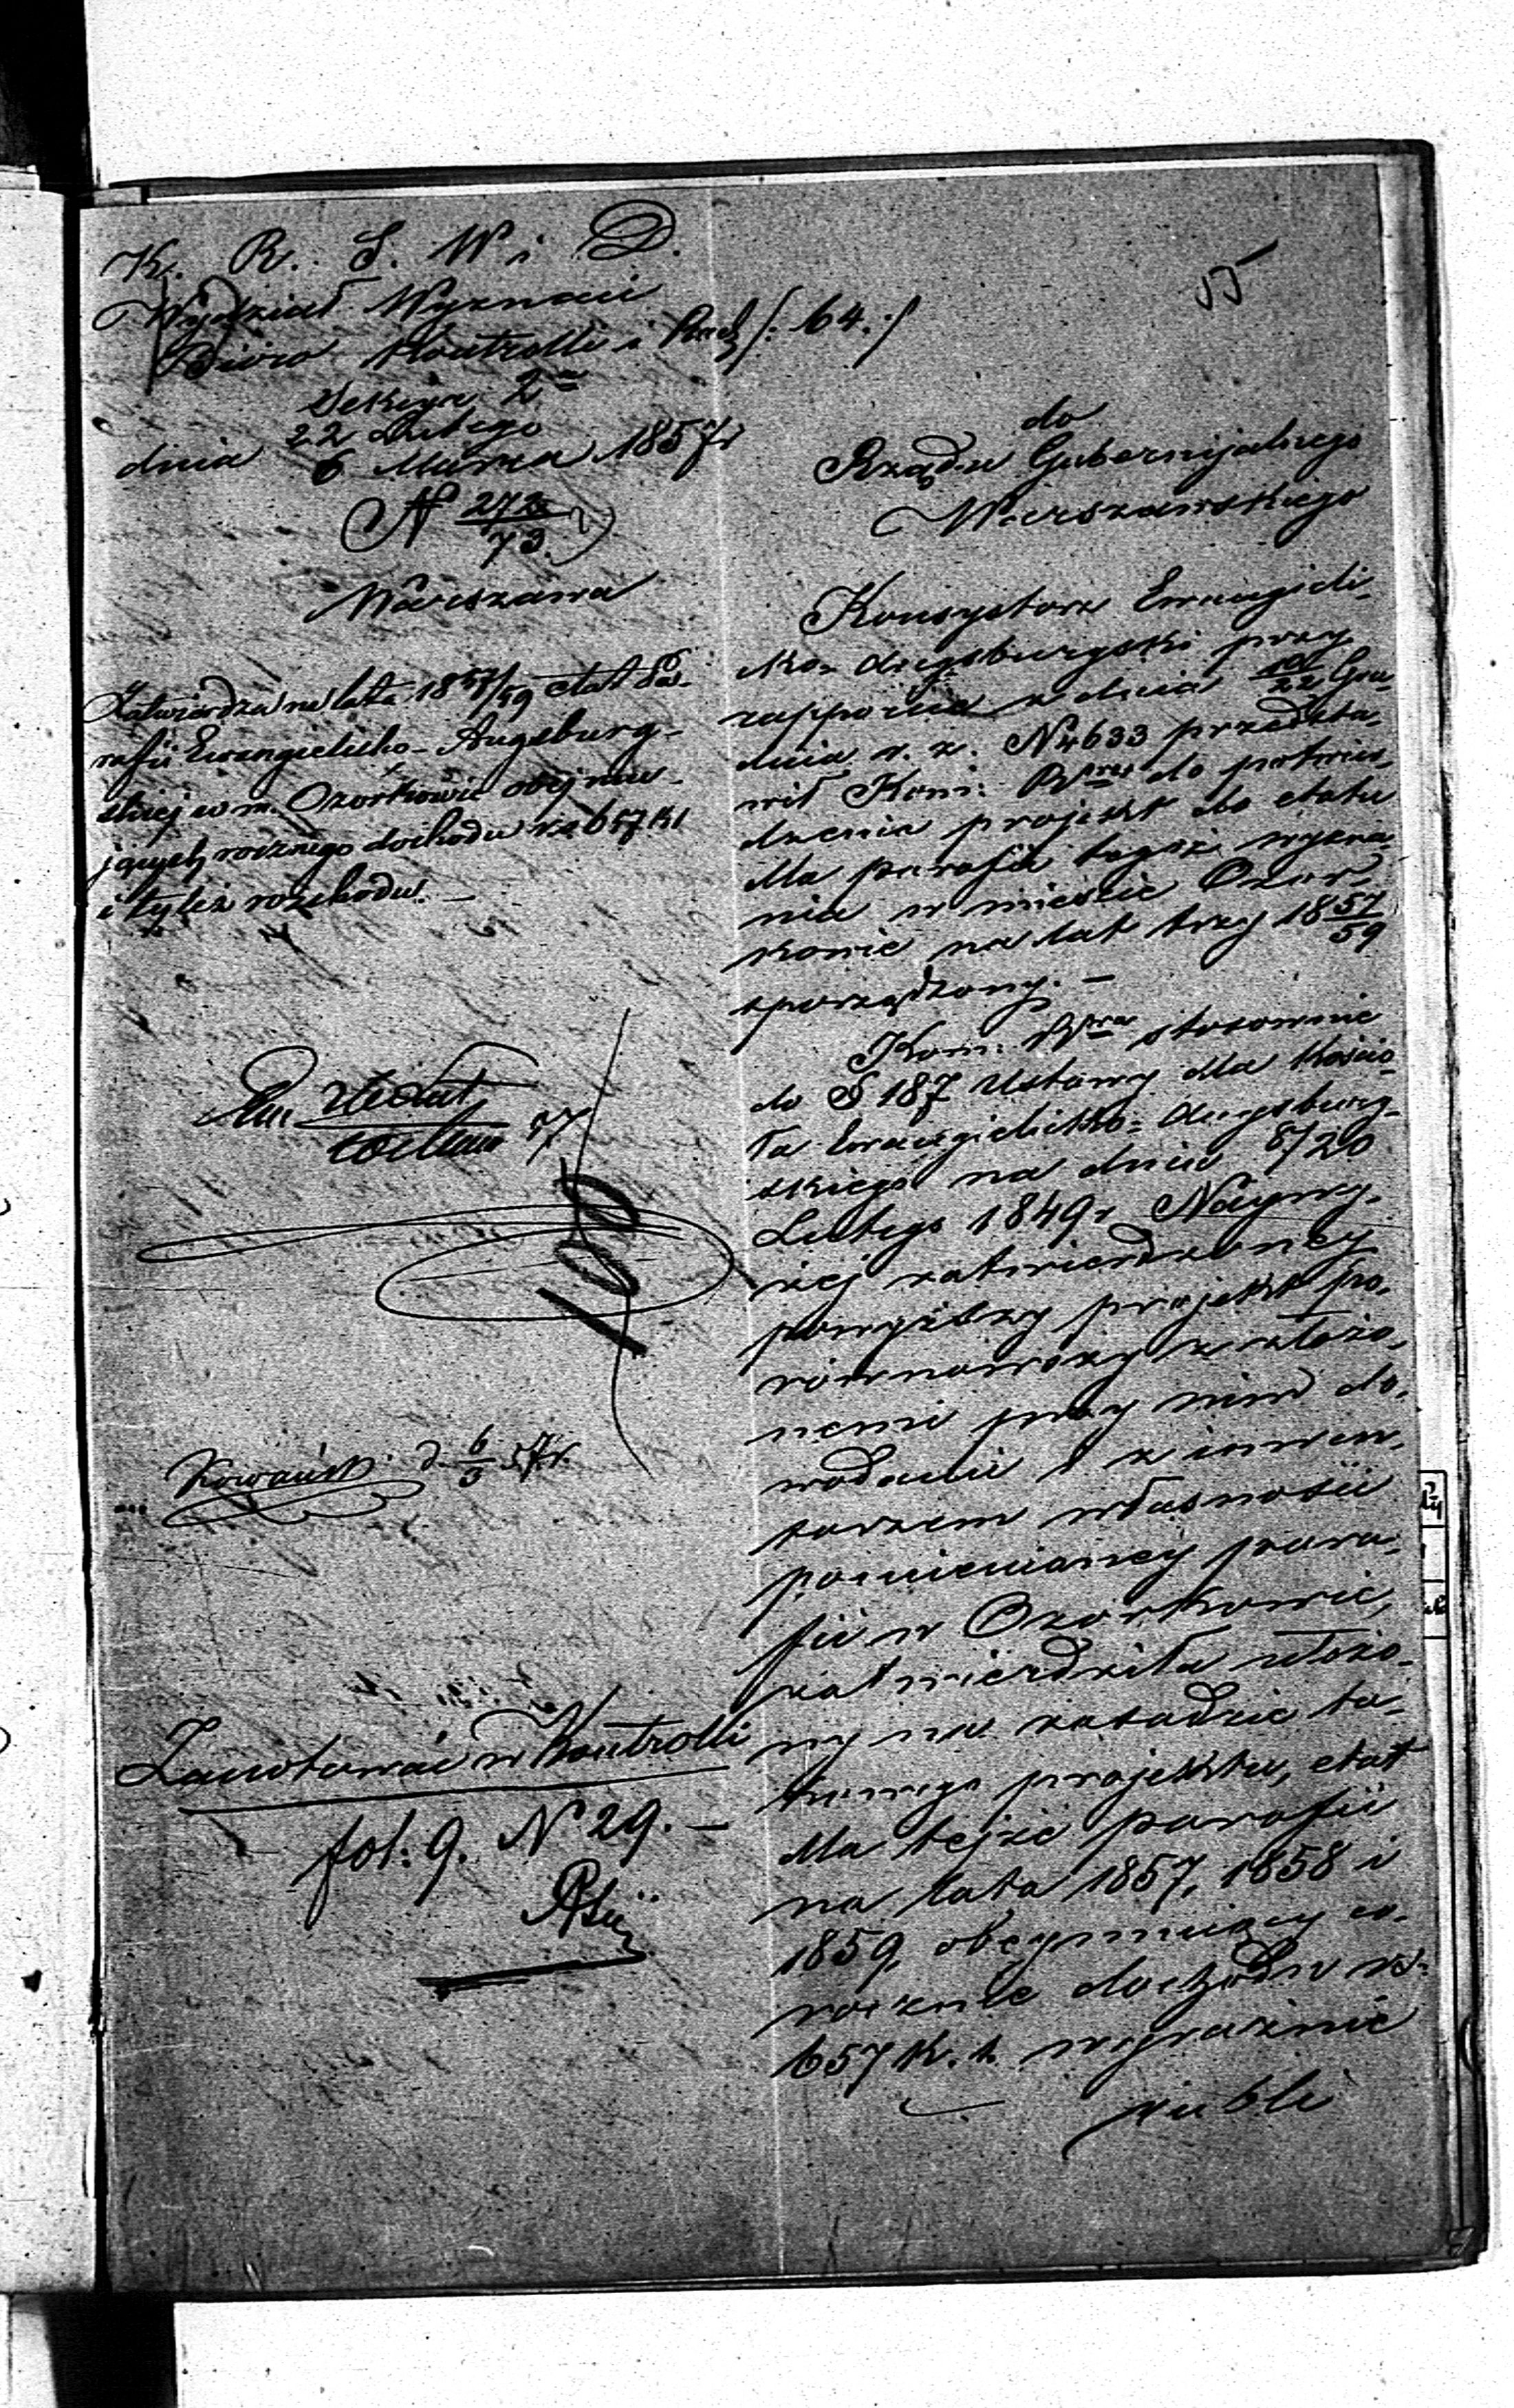 K. R. S. W i D.
Wydział Wyznań
Biuro Kontrolli i Rach /: 64. :/
Sekcya 2ª
22 Lutego
dnia 6 Marca 1857 r
N 272
73.
Warszawa
Zatwierdza na lata 1857/59 etat Pa-
rafii Ewangelicko-Augsburg-
skiej w m. Ozorkowie obejmu-
jących rocznego dochodu rs 657 k 1
i tyleż rozchodu. —
Kowański d. 6/3 57 r.
Zanotować w Kontrolli
fol: 9. N 29. —
55
do
Rządu Gubernijalnego
Warszawskiego
Konsystorz Ewangieli-
cko-Augsburgski przy
rapporcie z dnia 10/22 Gru-
dnia r. z. N 4633 przedsta-
wił Kom: Rząd: do potwier-
dzenia projekt do etatu
dla parafii tegoż wyzna-
nia w mieście Ozor-
kowie na lat trzy 1857/59
sporządzony. —
Kom: Rząd: stosownie
do § 187 Ustawy dla Kościo-
ła Ewangielicko-Augsburg-
skiego na dniu 8/20
Lutego 1849 r Naywy-
żej zatwierdzoney
powyższy projekt po-
równawszy z złożo-
nemi przy nim do-
wodami i z inwen-
tarzem własności
pomienioney para-
fii w Ozorkowie,
zatwierdziła ułożo-
ny na zasadzie ta-
kowego projektu, etat
dla tejże parafii
na lata 1857, 1858 i
1859, obeymujący co-
rocznie dochodu rs.
657 k. 1. wyraźnie
rubli